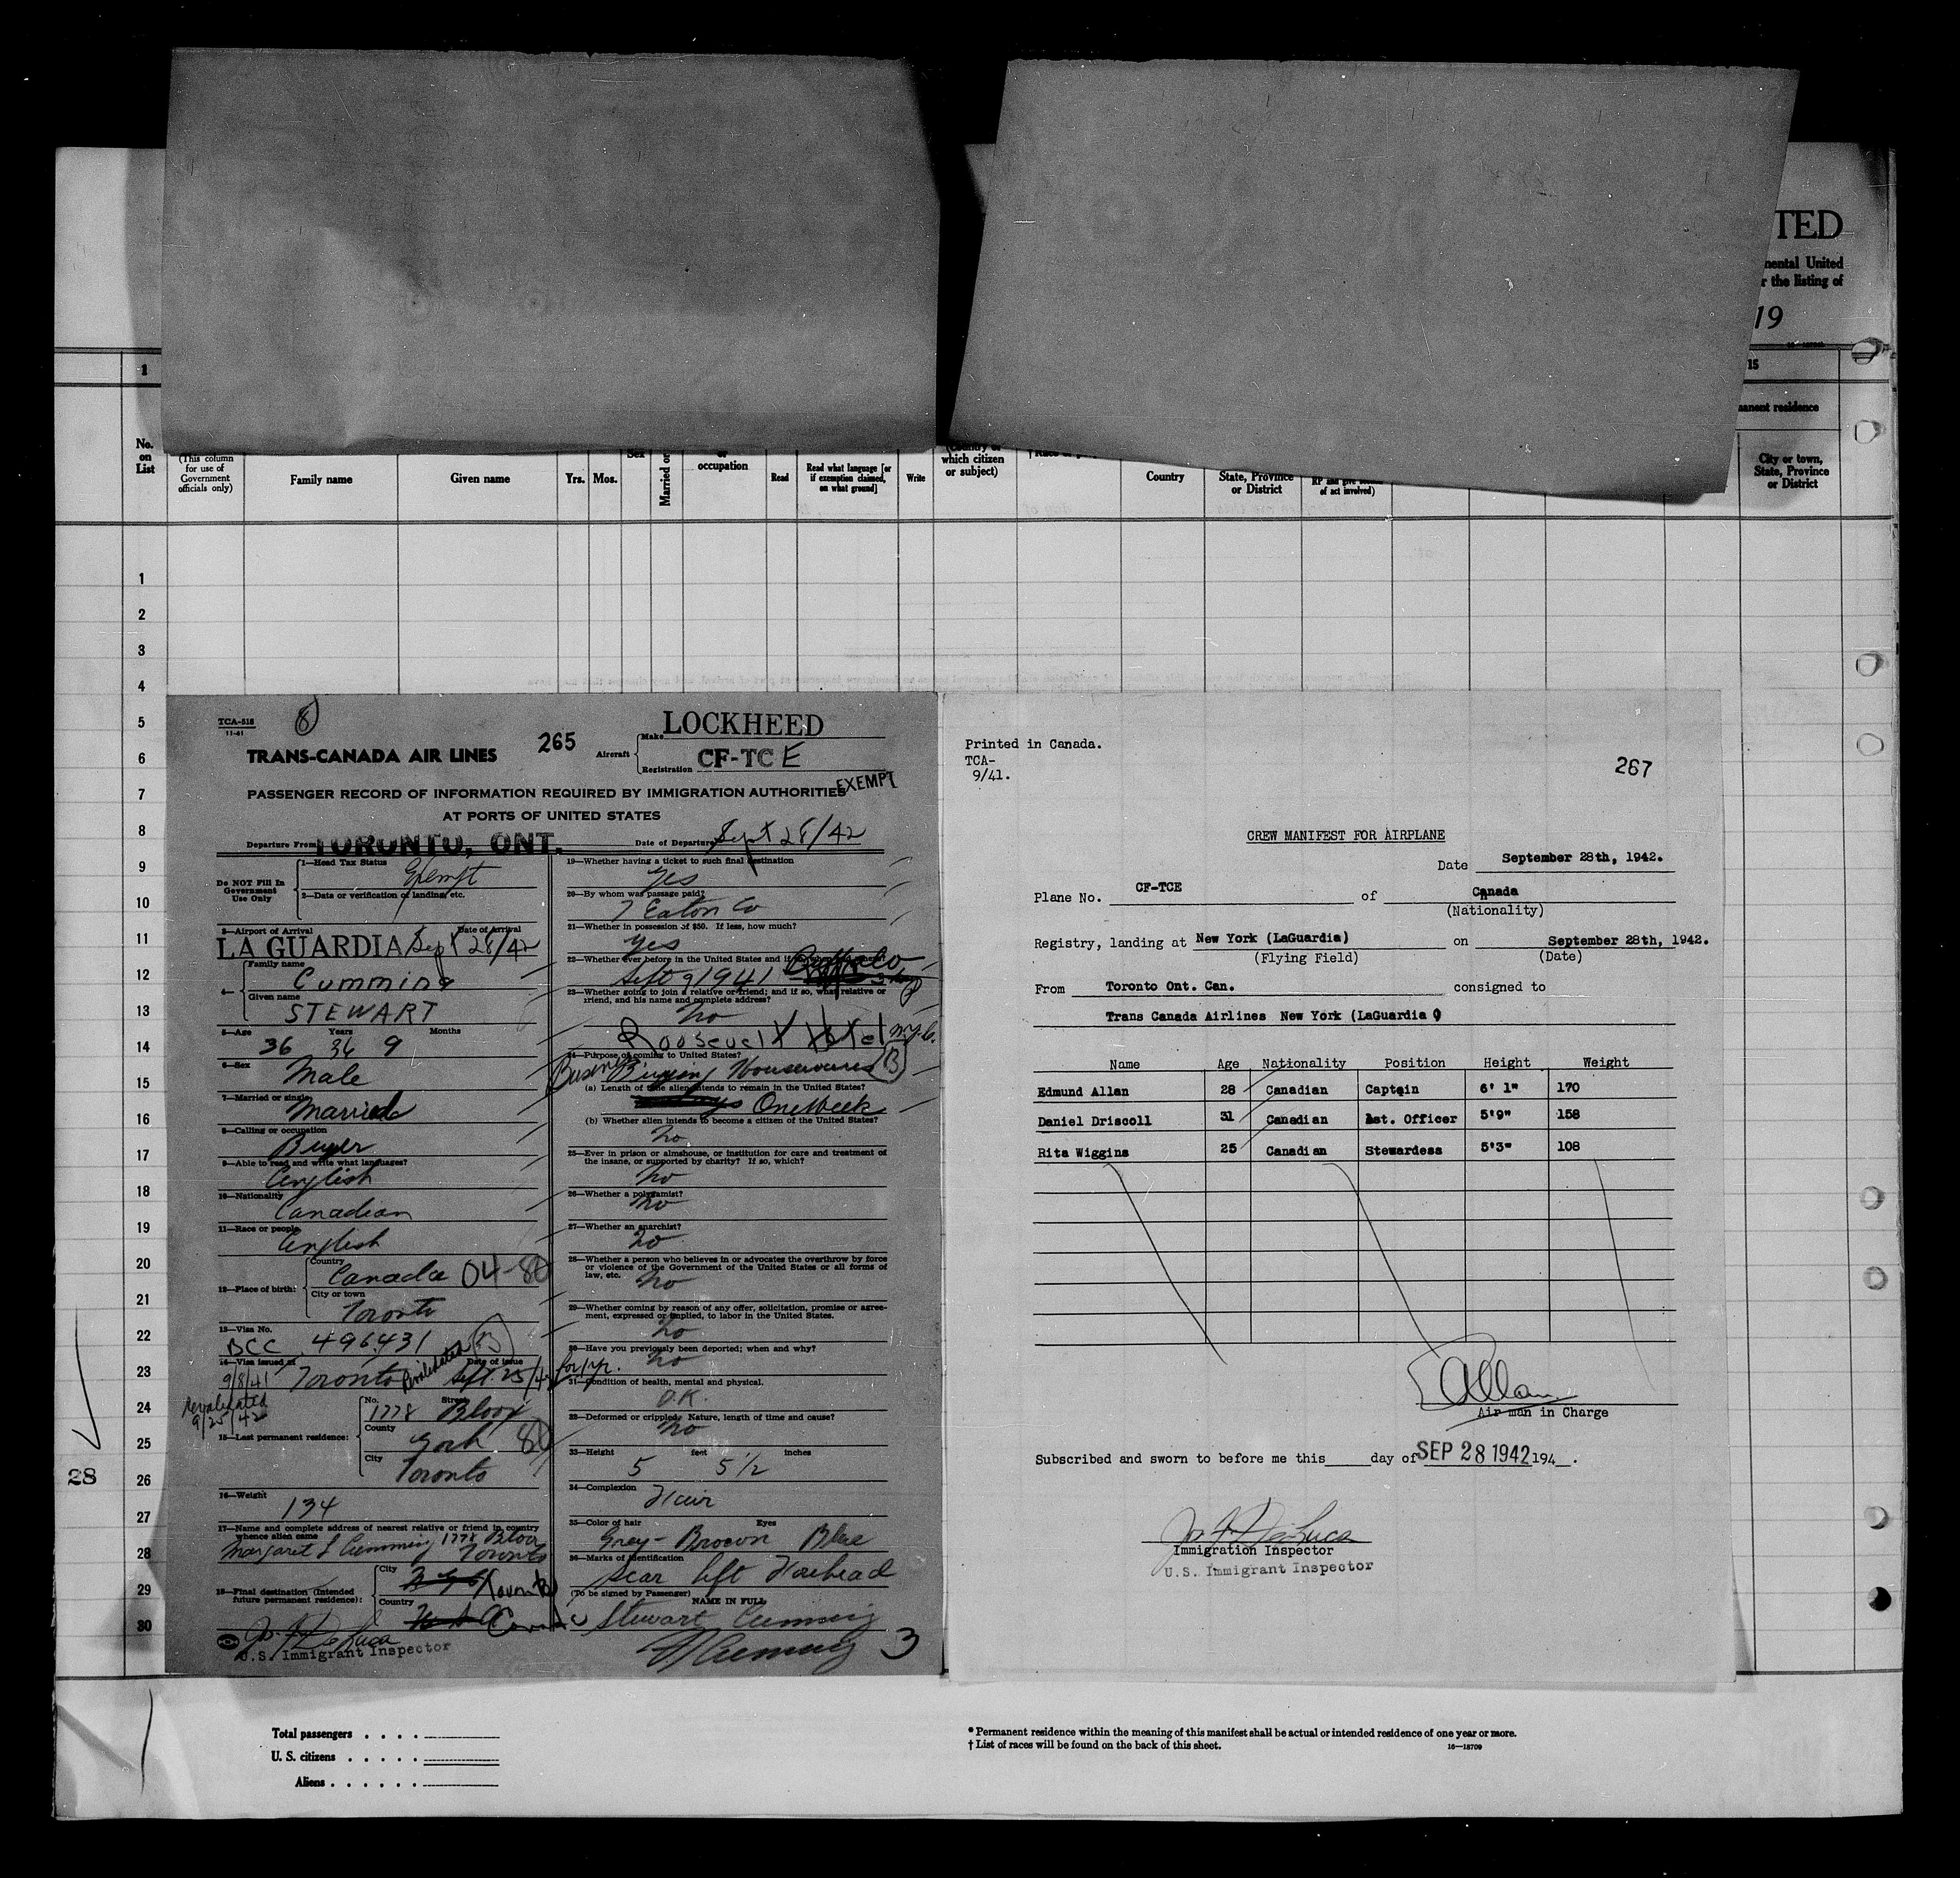 TED
nental United
r the listing of
19
1
15
manent residence
No.
on
List
(This column
for use of
Government
officials only)
Family name
Given name
Yrs. Mos.
Sex
Married or
or
occupation
Read
Read what language [or
if exemption claimed,
on what ground]
Write
(Country of
which citizen
or subject)
Country
State, Province
or District
RP and give
of act involved)
City or town,
State, Province
or District
1
2
3
4
5
6
7
8
9
10
11
12
13
14
15
16
17
18
19
20
21
22
23
24
25
26
27
28
29
30
28
TCA-518
11-41
8
TRANS-CANADA AIR LINES
265
Aircraft
Make LOCKHEED
Registration CF-TC E
EXEMPT
PASSENGER RECORD OF INFORMATION REQUIRED BY IMMIGRATION AUTHORITIES
AT PORTS OF UNITED STATES
Departure From TORONTO, ONT.
Date of Departure Sept 28/42
Do NOT Fill In
Government
Use Only
1—Head Tax Status
Exempt
2—Date or verification of landing, etc.
3—Airport of Arrival
Date of Arrival
LA GUARDIA Sept 28/42
4—
Family name
Cumming
Given name
STEWART
5—Age Years Months
36 36 9
6—Sex
Male
7—Married or single
Married
8—Calling or occupation
Buyer
9—Able to read and write what languages?
English
10—Nationality
Canadian
11—Race or people
English
12—Place of birth:
Country
Canada 04-80
City or town
Toronto
13—Visa No.
BCC 496431 B
14—Visa issued at
Date of issue
9/8/41 Toronto Revalidated Sept. 25/42 for 1 yr.
Revalidated
9/25/42
15—Last permanent residence:
No. Street
1778 Bloor
County
York 80
City
Toronto
16—Weight
134
17—Name and complete address of nearest relative or friend in country
whence alien came
Margaret L Cumming 1778 Bloor
Toronto
18—Final destination (Intended
future permanent residence):
City
Toronto
Country
Canada
U.S. Immigrant Inspector
19—Whether having a ticket to such final destination
Yes
20—By whom was passage paid?
T Eaton Co
21—Whether in possession of $50. If less, how much?
Yes
22—Whether ever before in the United States and if so, when and where?
Sept 9 1941 Buffalo
23—Whether going to join a relative or friend; and if so, what relative or
friend, and his name and complete address?
No
Roosevelt Hotel N.Y.C.
24—Purpose of coming to United States?
Business Buying Housewares B
(a) Length of time alien intends to remain in the United States?
One Week
(b) Whether alien intends to become a citizen of the United States?
No
25—Ever in prison or almshouse, or institution for care and treatment of
the insane, or supported by charity? If so, which?
No
26—Whether a polygamist?
No
27—Whether an anarchist?
No
28—Whether a person who believes in or advocates the overthrow by force
or violence of the Government of the United States or all forms of
law, etc.
No
29—Whether coming by reason of any offer, solicitation, promise or agree-
ment, expressed or implied, to labor in the United States.
No
30—Have you previously been deported; when and why?
No
31—Condition of health, mental and physical.
O.K.
32—Deformed or crippled. Nature, length of time and cause?
No
33—Height feet inches
5 5 1/2
34—Complexion
Fair
35—Color of hair Eyes
Grey - Brown Blue
36—Marks of identification
Scar left Forehead
(To be signed by Passenger)
NAME IN FULL
Stewart Cumming
S Cumming 3
Printed in Canada.
TCA-
9/41.
267
CREW MANIFEST FOR AIRPLANE
Date September 28th, 1942.
Plane No. CF-TCE of Canada
(Nationality)
Registry, landing at New York (LaGuardia) on September 28th, 1942.
(Flying Field) (Date)
From Toronto Ont. Can. consigned to
Trans Canada Airlines New York (LaGuardia )
Name Age Nationality Position Height Weight
Edmund Allan 28 Canadian Captain 6' 1" 170
Daniel Driscoll 31 Canadian 1st. Officer 5'9" 158
Rita Wiggins 25 Canadian Stewardess 5'3" 108
Allan
Air man in Charge
Subscribed and sworn to before me this day of SEP 28 1942 194 .
Immigration Inspector
U.S. Immigrant Inspector
Total passengers . . . .
U. S. citizens . . . . .
Aliens . . . . . .
* Permanent residence within the meaning of this manifest shall be actual or intended residence of one year or more.
† List of races will be found on the back of this sheet.
16—18709